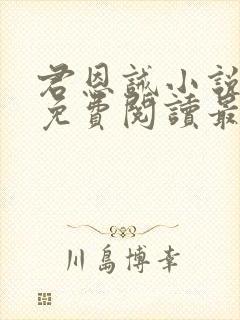 君恩誠小說
免費閱讀最
川島博幸